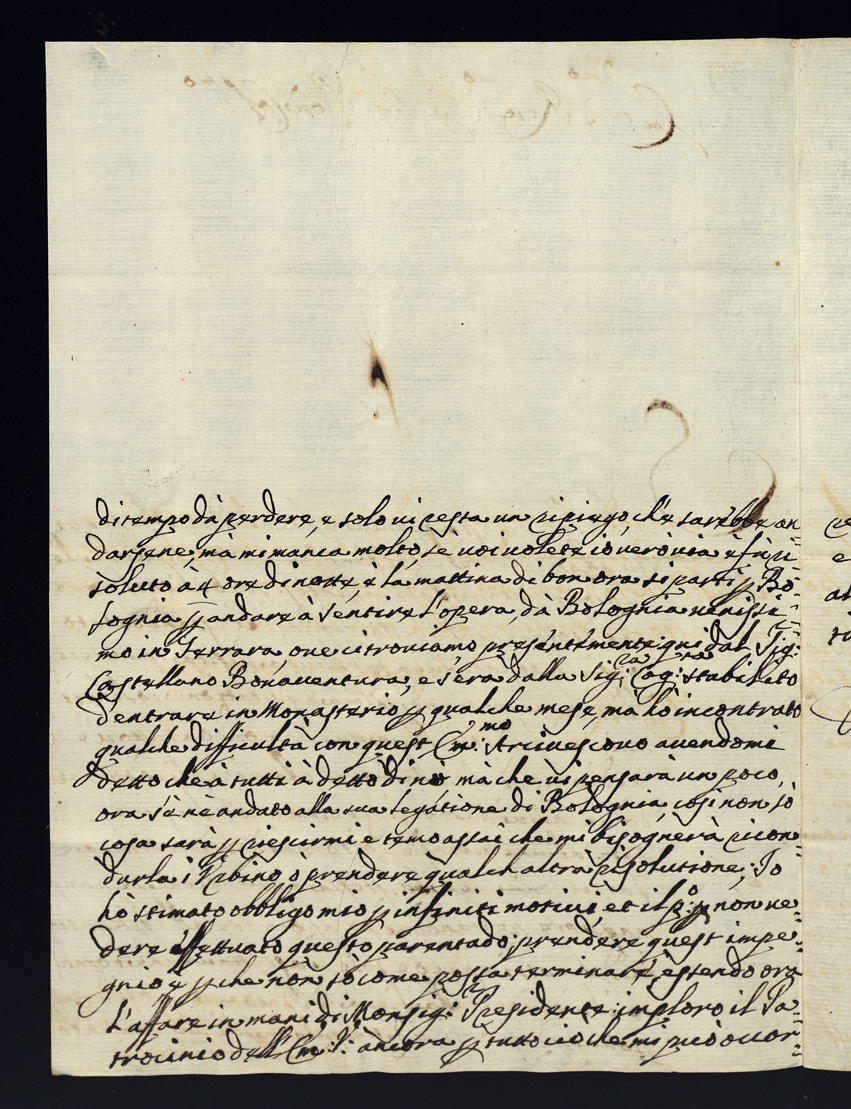 di tempo dà perdere, e solo ui resta un ripiego, ch'è sarebbe an=
darsene, mà mi manca molto, sè uoi uolete io uerò uia e fù ri=
soluto à 4 ore di notte, e la mattina di bon ora si partì p Bo=
lognia p andare à sentire l'opera, dà Bolognia uenissi=
mo in Ferrara, oue ci trouiamo presentemente qui dal Sig:
Castellano Bonauentura, e s'era dalla Sig:ra Cog:ta stabilito
d'entrare in Monasterio p qualche mese, mà hò incontrato
qualche difficultà con quest Em:mo Arciuescouo auendomi
detto che à tutti à detto di nò mà che ui pensarà un poco,
ora s'è nè andato alla sua legatione di Bolognia, cosi non sò
cosa sarà p riescirmi e temo assai che mi bisognerà ricon=
durla i Vrbino ò prendere qualch altra risolutione; Io
hò stimato obbligo mio p infiniti motiui, et il p:o p non ue=
dere effettuato questo parentado prendere quest impe=
gnio e p che non sò come possa terminare, essendo ora
l'affare in mani di Monsig:r Presidente imploro il Pa=
trocinio dell'Em: V: ancora p tutto ciò che mi può occor=